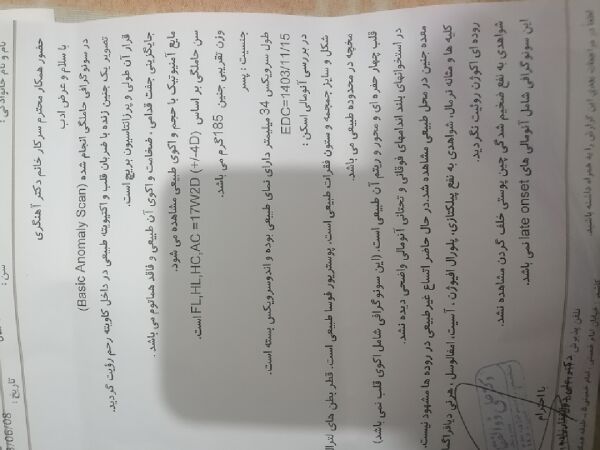 نام و نام خانوادگی :
سن :
تاریخ :
/06/08
حضور همکار محترم سرکار خانم دکتر آهنگری
با سلام و عرض ادب
در سونوگرافی حاملگی انجام شده (Basic Anomaly Scan)
تصویر یک جنین زنده با ضربان قلب و اکتیویته طبیعی در داخل کاویته رحم رؤیت گردید.
قرار آن طولی و پرزانتاسیون بریچ است.
جایگزینی جفت قدامی ، ضخامت و اکوی آن طبیعی و فاقد هماتوم می باشد.
مایع آمنیوتیک با حجم و اکوی طبیعی مشاهده می شود.
سن حاملگی بر اساس FL,HL,HC,AC =17W2D (+/-4D) است.
وزن تقریبی جنین 185 گرم می باشد.
جنسیت : پسر
طول سرویکس 34 میلیمتر دارای نمای طبیعی بوده و اندوسرویکس بسته است.
EDC=1403/11/15
در بررسی آنومالی اسکن :
شکل و سایز جمجمه و ستون فقرات طبیعی است. پوستریور فوسا طبیعی است. قطر بطن های لترال
مخچه در محدوده طبیعی می باشد.
قلب چهار حفره ای و محور و ریتم آن طبیعی است. (این سونوگرافی شامل اکوی قلب نمی باشد)
در استخوانهای بلند اندامهای فوقانی و تحتانی آنومالی واضحی دیده نشد.
معده جنین در محل طبیعی مشاهده شد. در حال حاضر اتساع غیرطبیعی در روده ها مشهود نیست.
کلیه ها و مثانه نرمال، شواهدی به نفع پیلکتازی، پلورال افیوژن ، آسیت، امفالوسل ، هرنی دیافراگما
روده ای اکوژن رویت نگردید.
شواهدی به نفع ضخیم شدگی چین پوستی خلف گردن مشاهده نشد.
این سونوگرافی شامل آنومالی های late onset نمی باشد.
با احترام
لطفا در مراجعات بعدی این گزارش را به همراه داشته باشید.
تلفن پذیرش